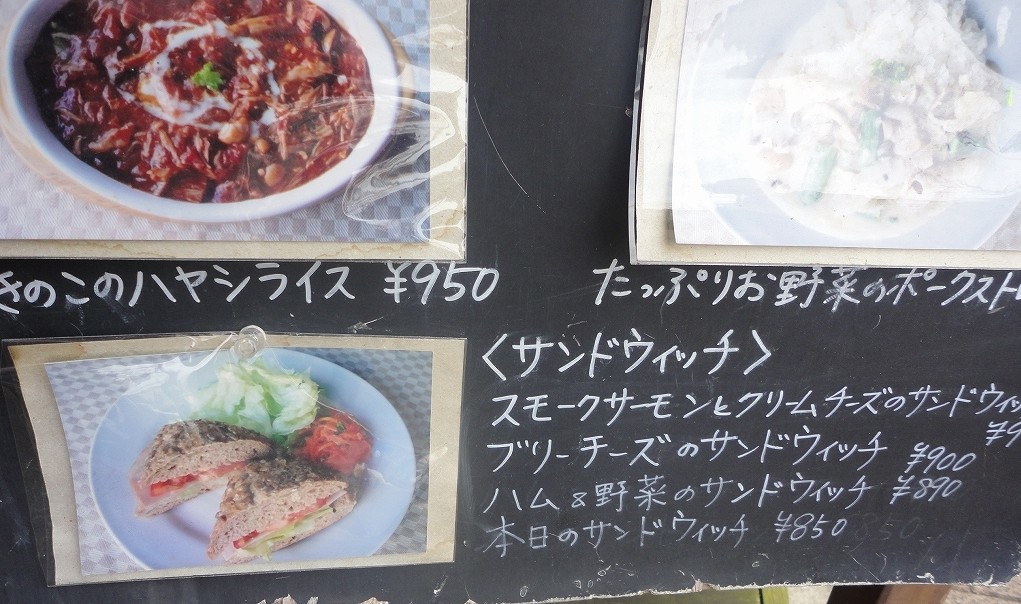 きのこのハヤシライス ¥950
たっぷりお野菜のポークスト
〈サンドウィッチ〉
スモークサーモンとクリームチーズのサンドウィッ
¥9
ブリーチーズのサンドウィッチ ¥900
ハム&野菜のサンドウィッチ ¥890
本日のサンドウィッチ ¥850